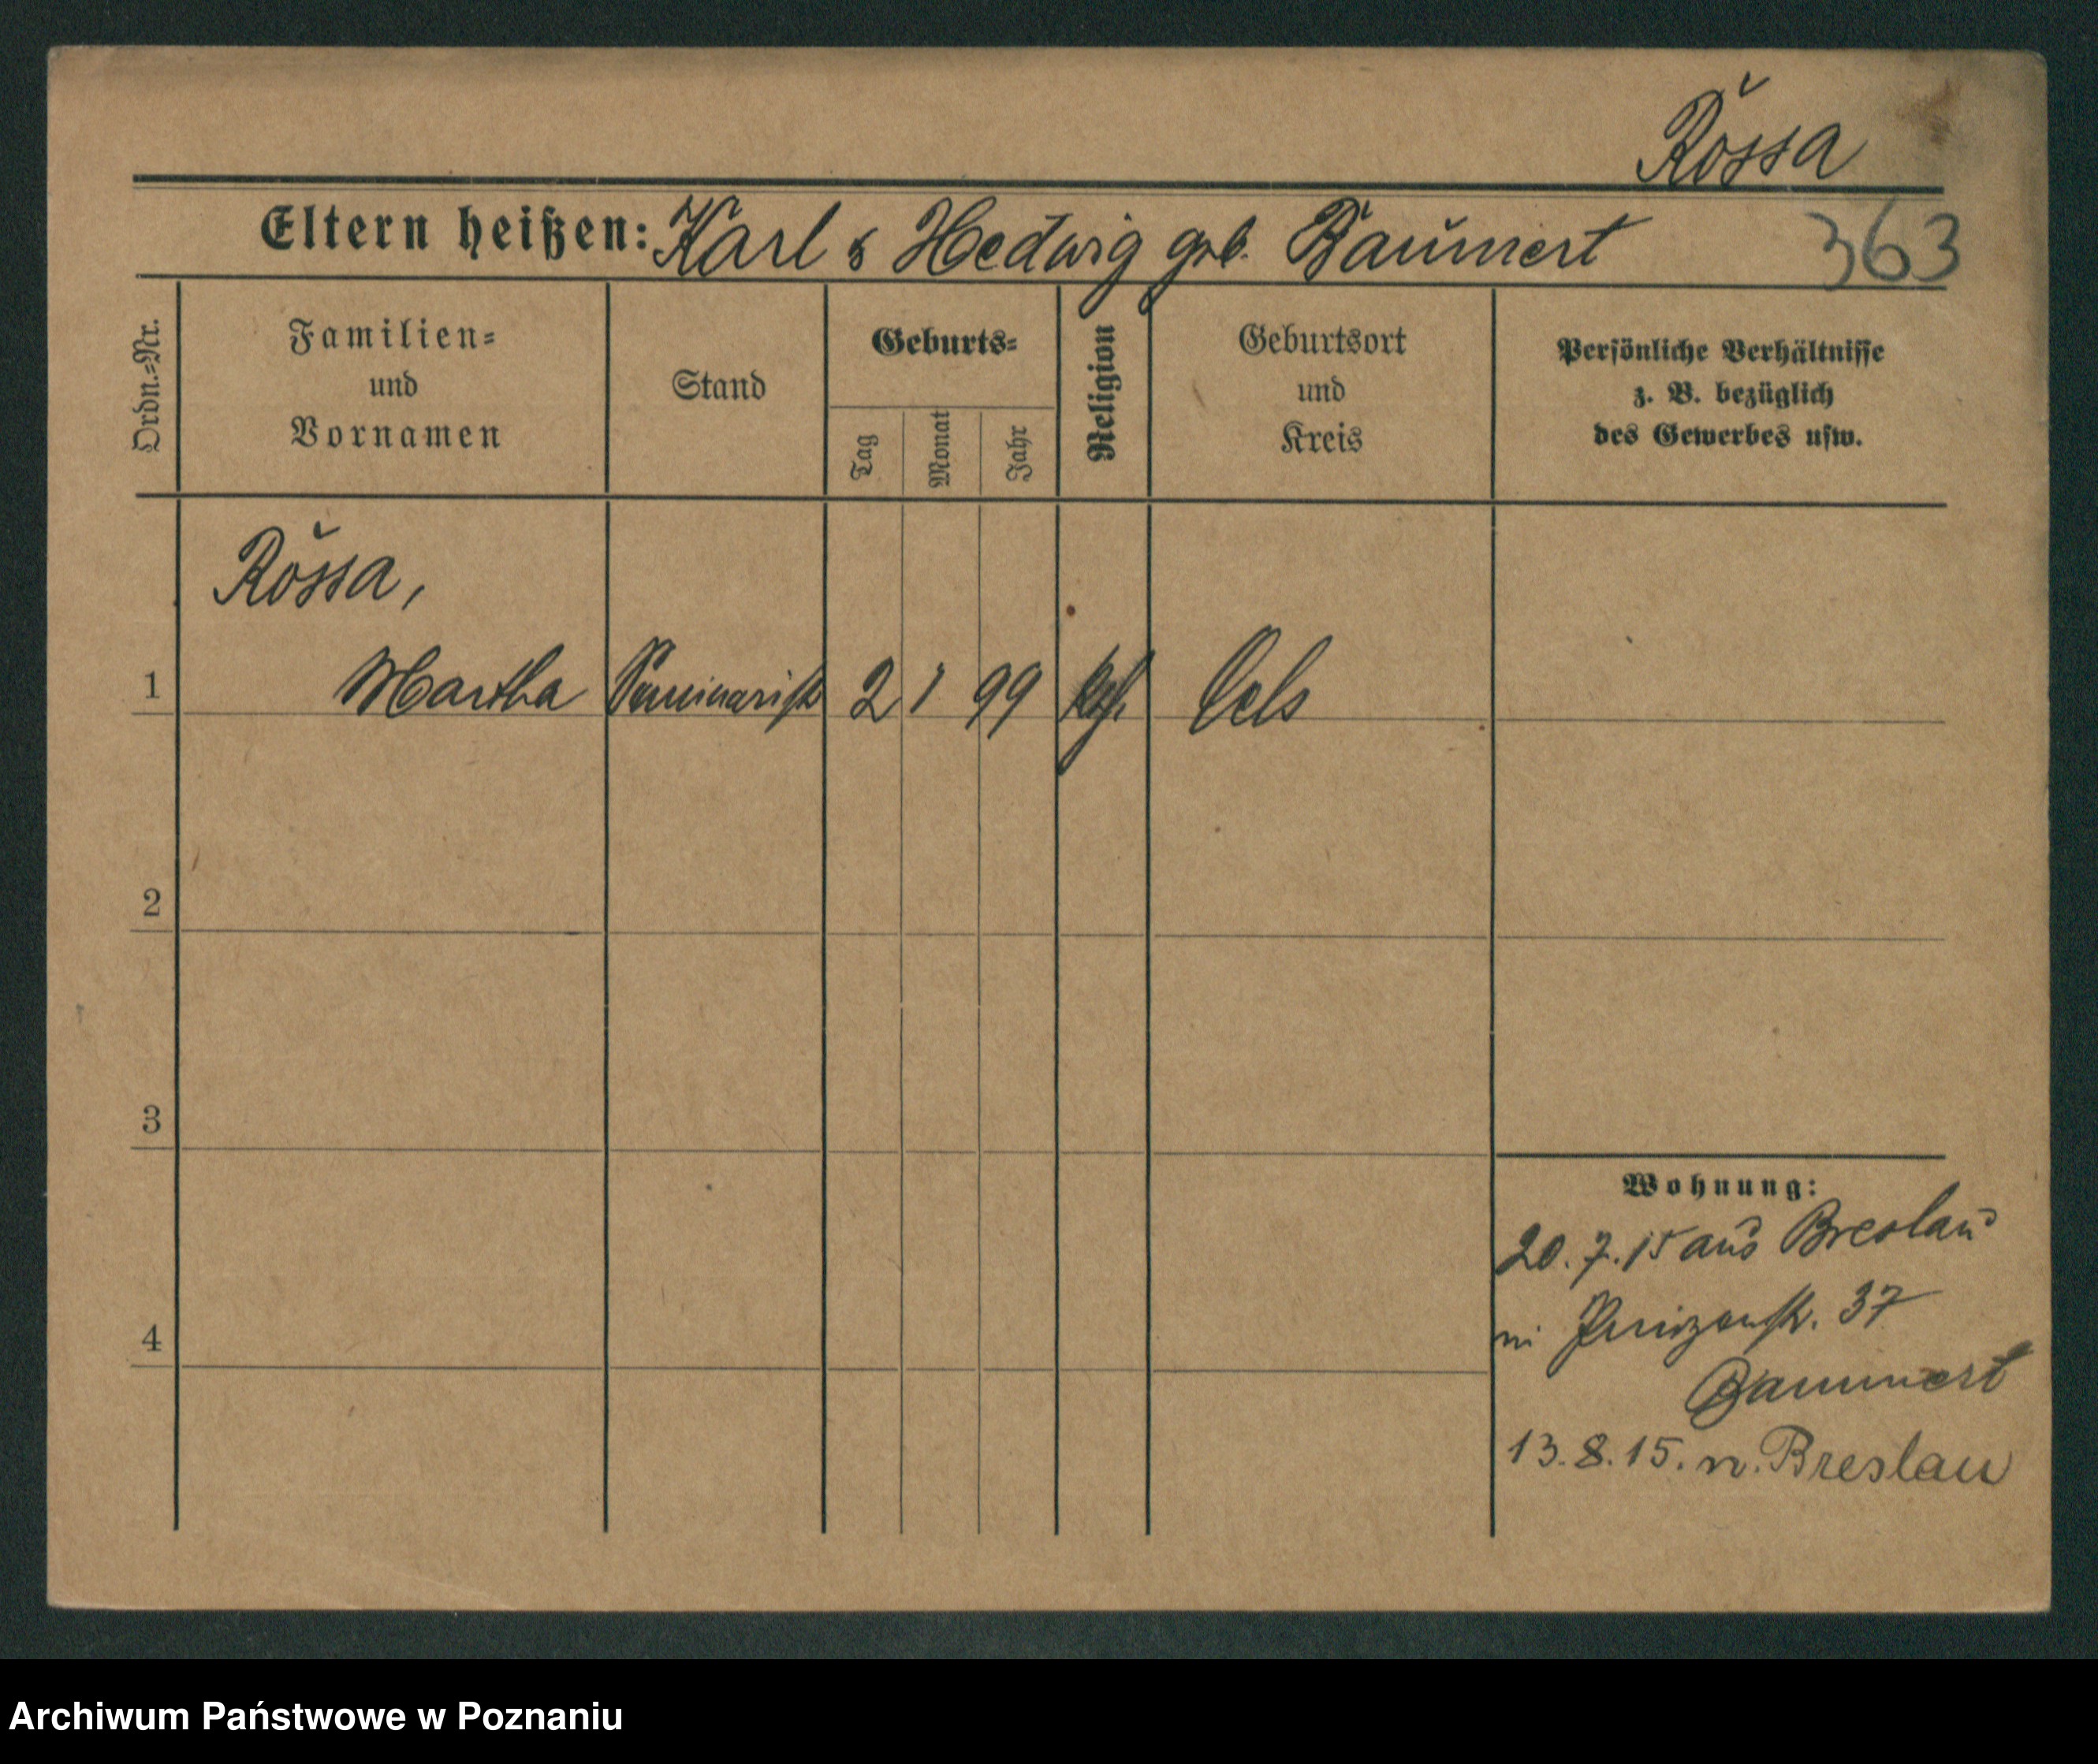 Rossa
Eltern heißen: Karl & Hedwig geb. Baumert
363
Ordn.=Nr.
Familien=
und
Vornamen
Stand
Geburts=
Tag
Monat
Jahr
Religion
Geburtsort
und
Kreis
Persönliche Verhältnisse
z. B. bezüglich
des Gewerbes usw.
Rossa,
1 Martha Seminarist 2 1 99 Oels
2
3
4
Wohnung:
20. 7. 15 aus Breslau
Prinzenstr. 37
Baumert
13. 8. 15. n. Breslau
Archiwum Państwowe w Poznaniu